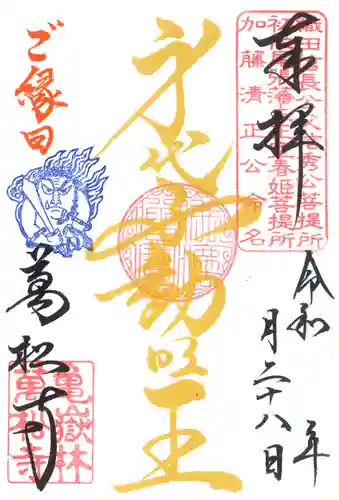 奉拝
織田信長公父信秀公菩提所
初代尾張藩主正室春姫菩提所
加藤清正公命名
令和 年
月二十八日
身代不動明王
ご縁日
萬松寺
亀嶽林
萬松寺